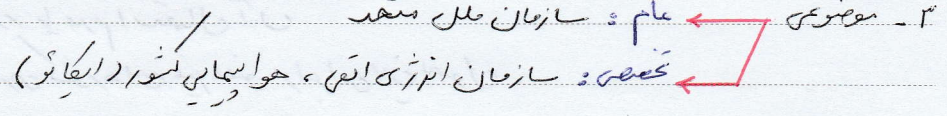 ۳ - موضوعی عام : سازمان ملل متحد
تخصصی : سازمان انرژی اتمی ، هواپیمایی کشور (ایکائو)